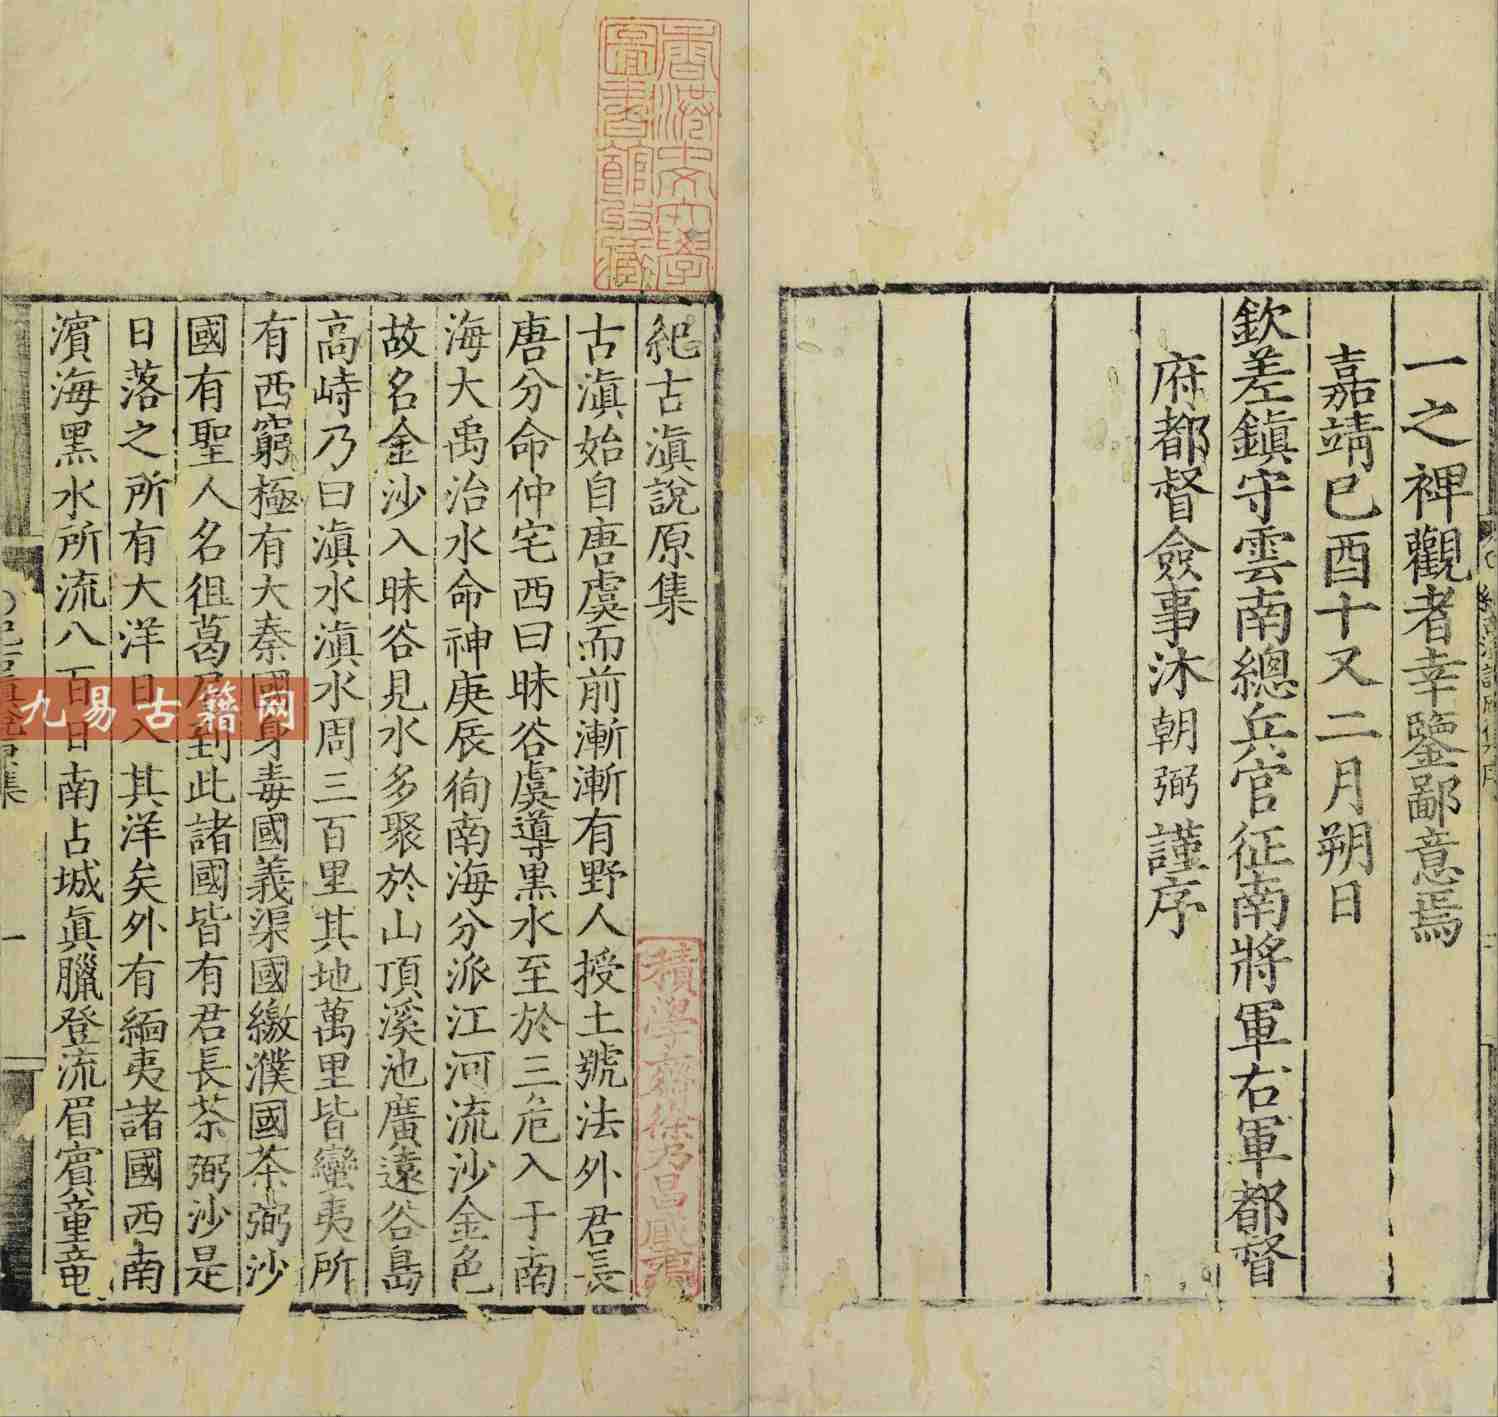 一之裨觀者幸鑒鄙意焉
嘉靖己酉十又二月朔日
欽差鎮守雲南總兵官征南將軍右軍都督
府都督僉事沐朝弼謹序
香港中文大學
圖書館收藏
紀古滇說原集
積學齋徐乃昌藏書
古滇始自唐虞而前漸漸有野人授土號法外君長
唐分命仲宅西曰昧谷虞導黑水至於三危入于南
海大禹治水命神庚辰徇南海分派江河流沙金色
故名金沙入昧谷見水多聚於山頂溪池廣遠谷島
高峙乃曰滇水滇水周三百里其地萬里皆蠻夷所
有西窮極有大秦國身毒國義渠國繳濮國茶弼沙
國有聖人名徂葛尼到此諸國皆有君長茶弼沙是
日落之所有大洋日入其洋矣外有緬夷諸國西南
濱海黑水所流八百日南占城眞臘登流眉賓童竜
九易古籍网
集
一